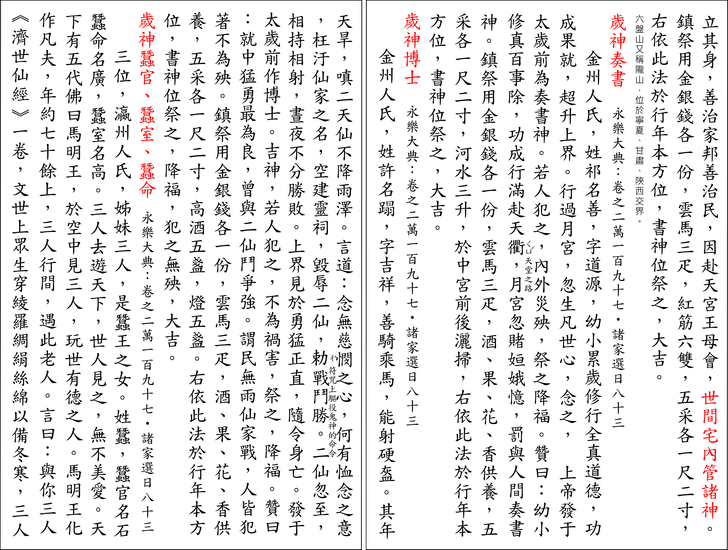 立其身，善治家邦善治民，因赴天宮王母會，世間宅內管諸神。
鎮祭用金銀錢各一份，雲馬三疋，紅筋六雙，五采各一尺二寸，
右依此法於行年本方位，書神位祭之，大吉。
六盤山又稱隴山，位於寧夏、甘肅、陝西交界。
歲神奏書　永樂大典：卷之二萬一百九十七・諸家選日八十三
金州人氏，姓祁名善，字道源，幼小累歲修行全真道德，功
成果就，超升上界。行過月宮，忽生凡世心，念之，　上帝發于
太歲前為奏書神。若人犯之，內外災殃，祭之降福。贊曰：幼小
修真百事除，功成行滿赴天衢，月宮忽賭姮娥憶，罰與人間奏書
ㄑㄩ天堂之路
神。鎮祭用金銀錢各一份，雲馬三疋，酒、果、花、香供養，五
采各一尺二寸，河水三升，於中宮前後灑掃，右依此法於行年本
方位，書神位祭之，大吉。
歲神博士　永樂大典：卷之二萬一百九十七・諸家選日八十三
金州人氏，姓許名蹋，字吉祥，善騎乘馬，能射硬盔。其年
天旱，嗔二天仙不降雨澤。言道：念無慈憫之心，何有恤念之意
，枉汙仙家之名，空建靈祠，毀辱二仙，勅戰鬥勝。二仙忽至，
符咒上驅役鬼神的命令
相持相射，晝夜不分勝敗。上界見於勇猛正直，隨令身亡。發于
太歲前作博士。吉神，若人犯之，不為禍害，祭之，降福。贊曰
：就中猛勇最為良，曾與二仙鬥爭強。謂民無雨仙家戰，人皆犯
著不為殃。鎮祭用金銀錢各一份，雲馬三疋，酒、果、花、香供
養，五采各一尺二寸，高酒五盞，燈五盞。右依此法於行年本方
位，書神位祭之，降福，犯之無殃，大吉。
歲神蠶官、蠶室、蠶命　永樂大典：卷之二萬一百九十七・諸家選日八十三
三位，瀛州人氏，姊妹三人，是蠶王之女。姓蠶，蠶官名石
蠶命名廣，蠶室名高。三人去遊天下，世人見之，無不美愛。天
下有五代佛曰馬明王，於空中見三人，玩世有德之人。馬明王化
作凡夫，年約七十餘上，三人行間，遇此老人。言曰：與你三人
《濟世仙經》一卷，文世上眾生穿綾羅綢絹絲綿以備冬寒，三人